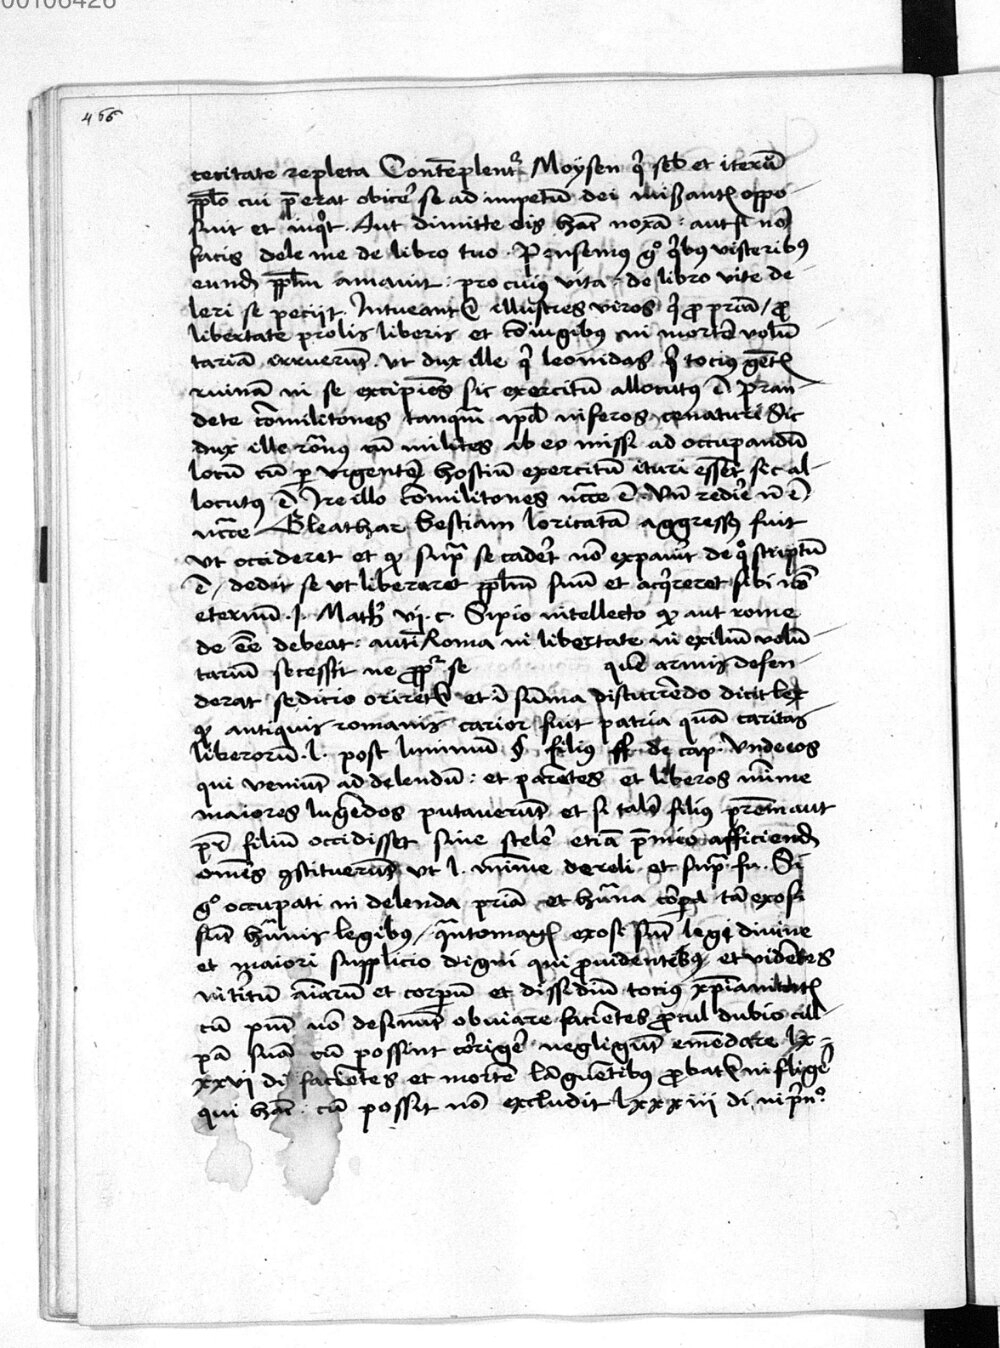 00106426
466
cecitate repleta Contēplentʳ Moysen qͥ sel̄ et iterū
pp̄lo cui p̄erat obicē se ad impetū dei mīnantꝭ oppo
suit et inqͥt Aut dimitte eis hāc noxā : aut si nō
facis dele me de libro tuo · Pensemꝯ gͦ qͥbꝯ visceribꝯ
eundē pp̄lm amauit : pro cuiꝯ vita de libro vite de
leri se peciit · Intueantʳ illustres viros qͥ ꝓ pr̄iā / ꝓ
libertate prolis liberis et cōiugibꝯ in mortē volū
tariā irruerūt · vt dux ille qͥ leonidas qͥ tociꝯ gētꝭ
ruinā in se excipiēs sic exercitū allocutꝯ ē Pran
dete cōmilitones tanquā apd̄ inferos cenaturi Sic
dux ille romānꝯ cū milites ab eo missi ad occupandū
locū cū ꝑ vrgentē hostiū exercitū ituri essēt sic al
locutꝯ ē Ire illo cōmilitones ncc̄e ē · Vn̄ redire nō ē
ncc̄e Eleathar bestiam loricatā aggressꝯ fuit
vt occideret et qꝫ supᵃ se cadēt nō expauit de qͦ scriptū
ē / dedit se vt liberaret pp̄lm suū et acqͥreret sibi nō̄
eternū · j · Mach̄ vj · c · Sipio intellecto qꝫ aut rome
de eē debeat : aut Roma in libertate in exiliū volū
tariū secessit ne ꝓpt̄ se quē armis defen
derat sedicio oriretʳ et ī sūma discurrēdo dicit lex
qꝫ antiquis romanis carior fuit patria quā caritas
liberorū · l · post liminiū § filiꝯ ff de cap · Vnde eos
qui veniūt ad delendū : et parētes et liberos mīme
maiores lugēdos putauerūt et si talē filiꝯ pr̄em aut
pr̄ filiū occidisset sine scelere etiā p̄mio afficiend
om̄es ꝯstituerūt vt l · mīme de reli · et supᵃ · fu · Si
gͦ occupati in delenda pr̄iā et hūana corpa tā exosi
sūt hūanis legibꝯ / qͣntomagꝭ exosi sūt legi diuine
et maiori supplicio digni qui ꝓuidentibꝯ et vidētes
int̄itū aīarū et corporū et dissidiū tociꝯ xp̄ianitatꝭ
cū piū nō desinūt obuiare facientes ꝓcul dubio cul
pā suā cū possint cōrigē negligūt emēdare lx
xxvi di facientes et mortē lāguētibꝯ ꝓbatʳ infligē
qui hāc · cū possit nō excludit lxxxiii di in pͥnͦ